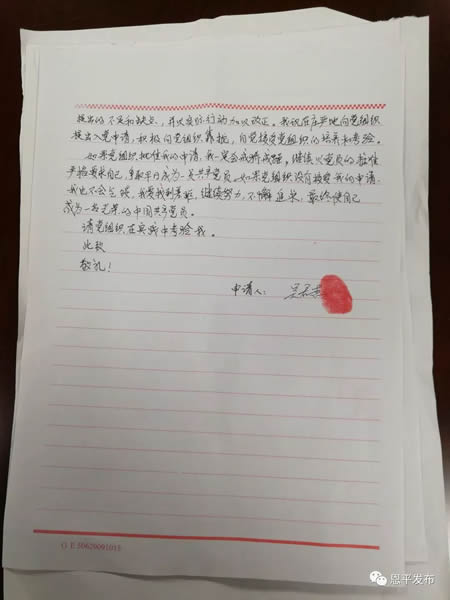 提出的不足和缺点，并以实际行动加以改正。我现在庄严地向党组织
提出入党申请，积极向党组织靠拢，自觉接受党组织的培养和考验。
如果党组织批准我的申请，我一定会戒骄戒躁，继续以党员的标准
严格要求自己，争取早日成为一名共产党员。如果党组织没有接受我的申请，
我也不会气馁，我要找到差距，继续努力，不懈追求，最终使自己
成为一名光荣的中国共产党员。
请党组织在实践中考验我。
此致
敬礼！
申请人：吴
O E 50620091015
恩平发布